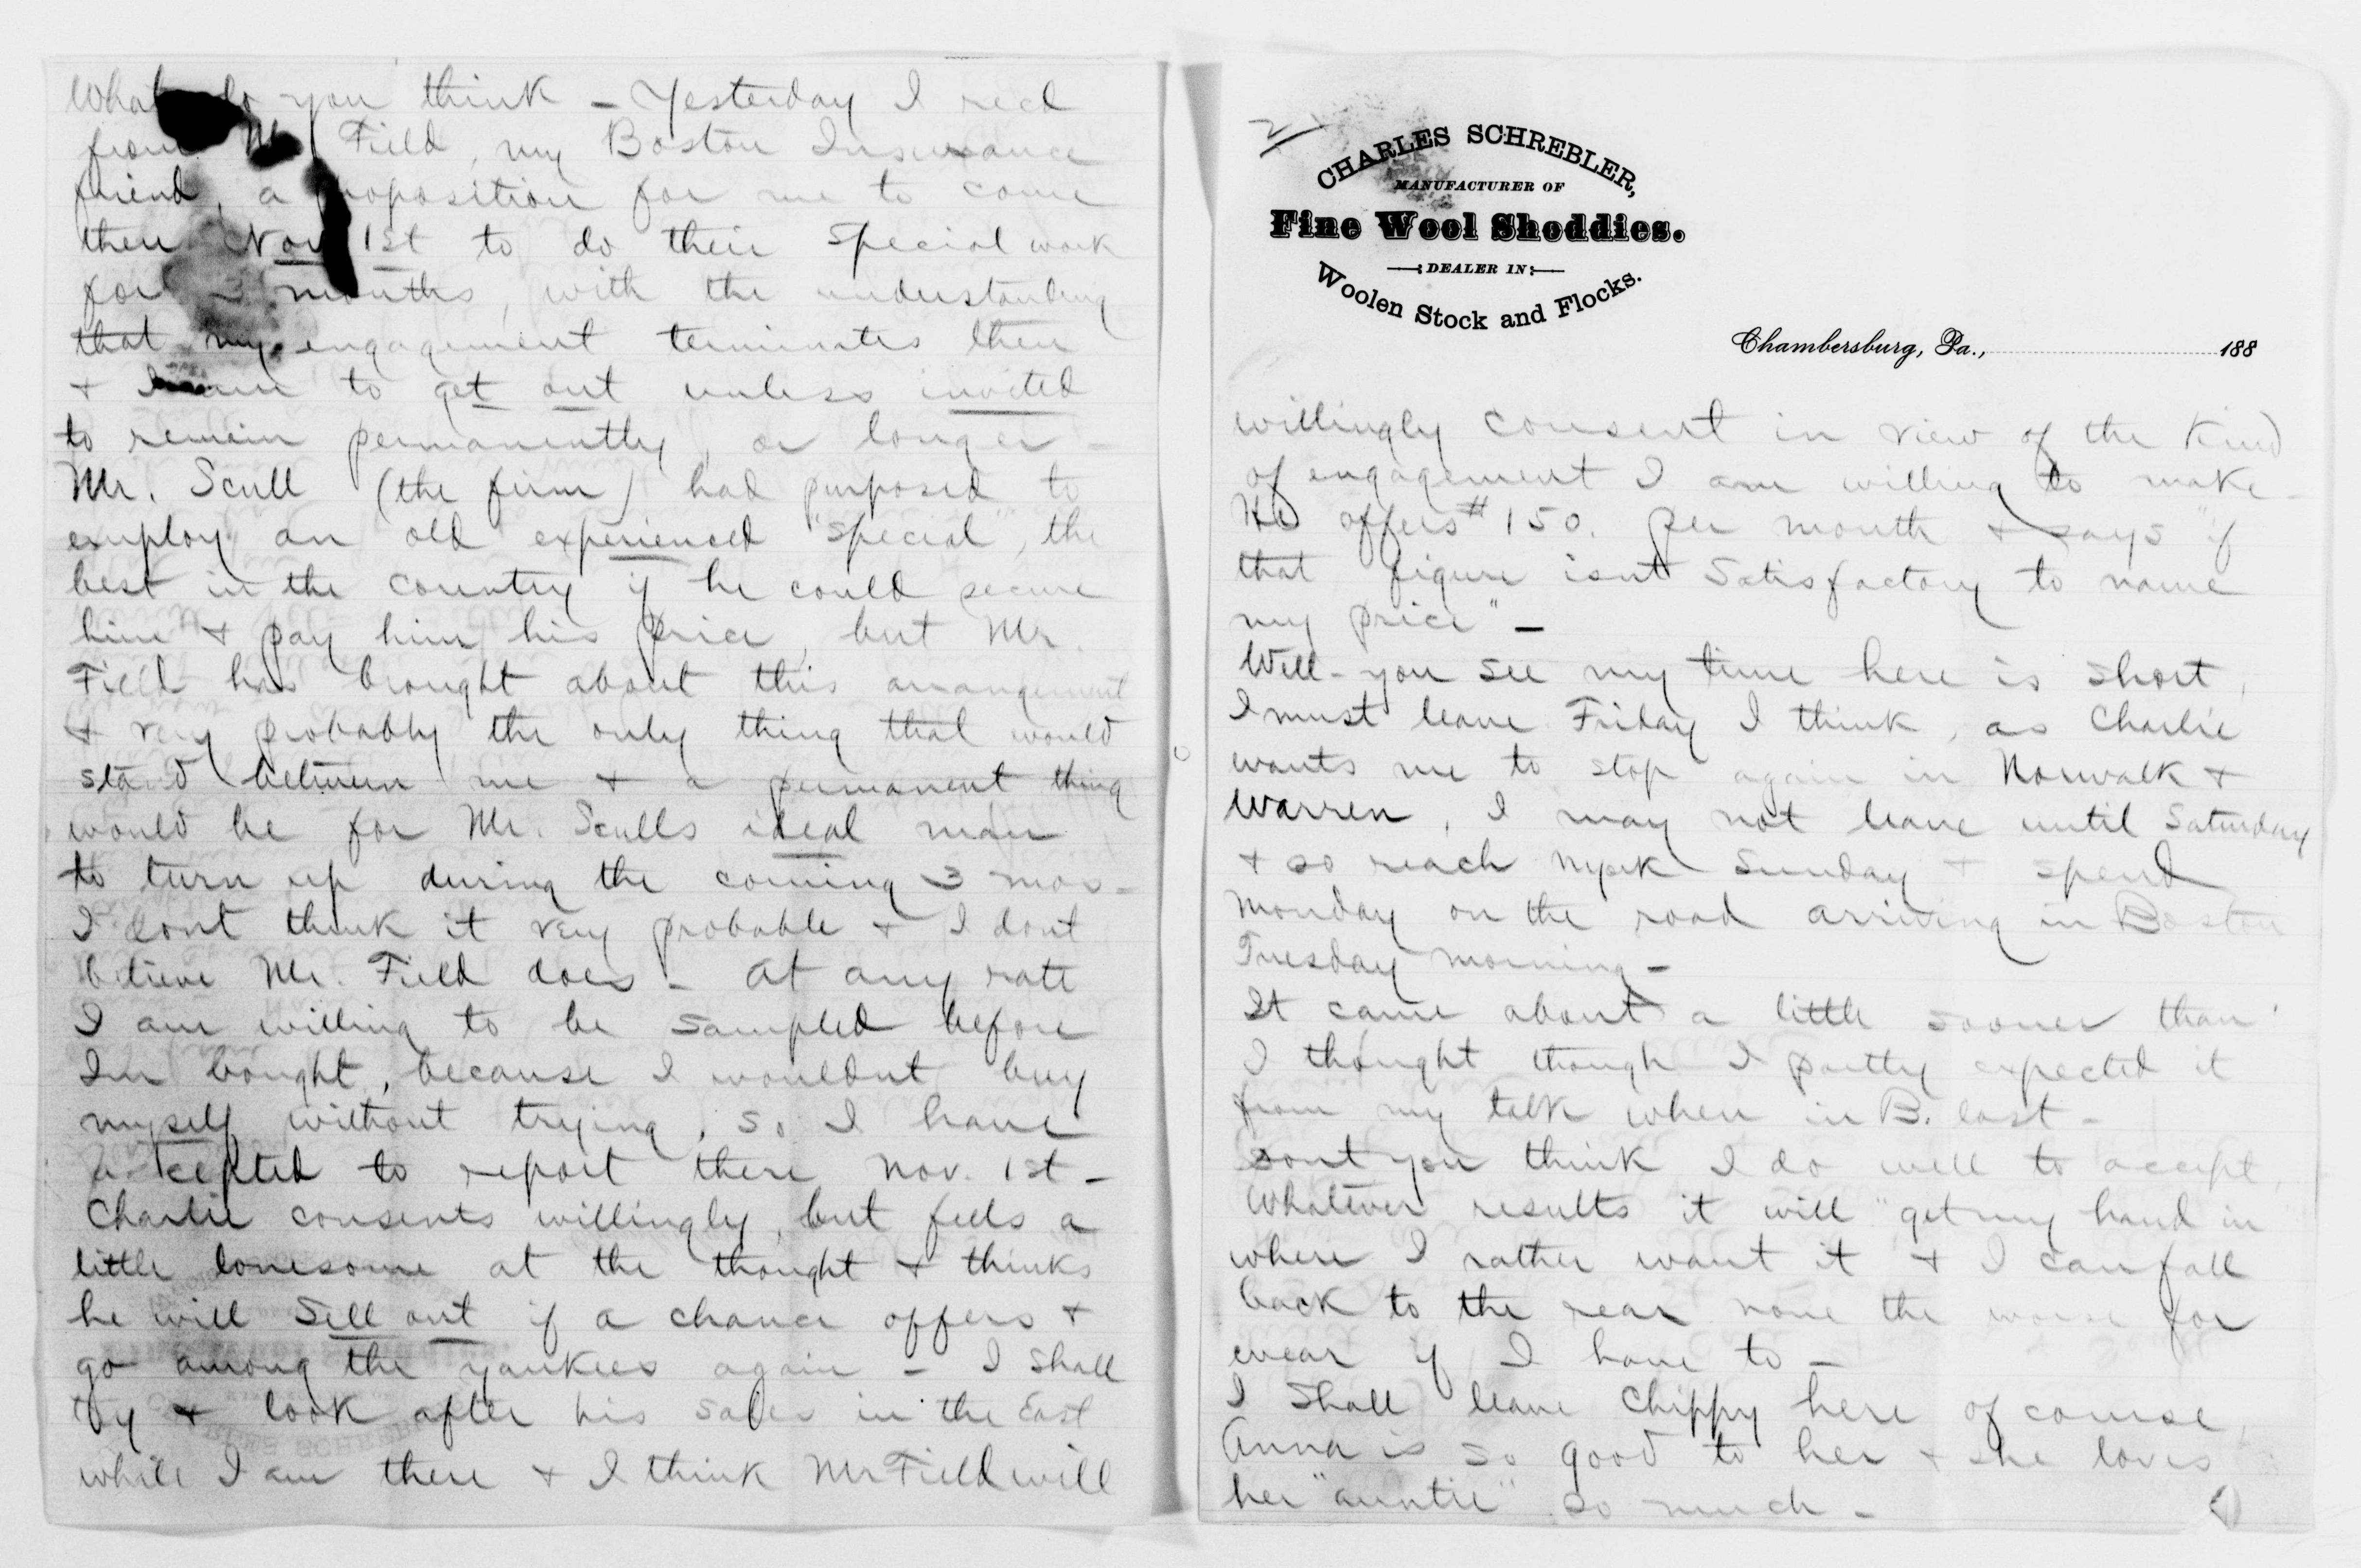 What do you think - Yesterday I recd
from Mr Field, my Boston Insurance
friend, a proposition for me to come
there Nov 1st to do their special work
for 3 months, with the understanding
that my engagement terminates then
+ I am to get out unless invited
to remain permanently, or longer -
Mr. Scull (the firm) had purposed to
employ an old experienced "special", the
best in the country if he could secure
him + pay him his price, but Mr.
Field has brought about this arrangement
+ very probably the only thing that would
stand between me + a permanent thing
would be for Mr. Sculls ideal man
to turn up during the coming 3 mos -
I dont think it very probable + I dont
believe Mr. Field does - at any rate
I am willing to be sampled before
Im bought, because I wouldnt buy
myself without trying, so I have
accepted to report there Nov. 1st -
Charlie consents willingly, but feels a
little lonesome at the thought + thinks
he will sell out if a chance offers +
go among the yankees again - I shall
try + look after his sales in the East
while I am there + I think Mr Field will
2
CHARLES SCHREBLER,
MANUFACTURER OF
Fine Wool Shoddies.
DEALER IN
Woolen Stock and Flocks.
Chambersburg, Pa., 188
willingly consent in view of the kind
of engagement I am willing to make -
He offers $150. per month + says "if
that figure isnt satisfactory to name
my price" -
Well - you see my time here is short,
I must leave Friday I think, as Charlie
wants me to stop again in Norwalk +
Warren, I may not leave until Saturday
+ so reach Nyack Sunday + spend
Monday on the road arriving in Boston
Tuesday morning -
It came about a little sooner than
I thought though I partly expected it
from my talk when in B. last -
Dont you think I do well to accept,
Whatever results it will "get my hand in
where I rather want it + I can fall
back to the rear none the worse for
wear if I have to -
I shall leave Chippy here of course,
Anna is so good to her + she loves
her "auntie" so much -